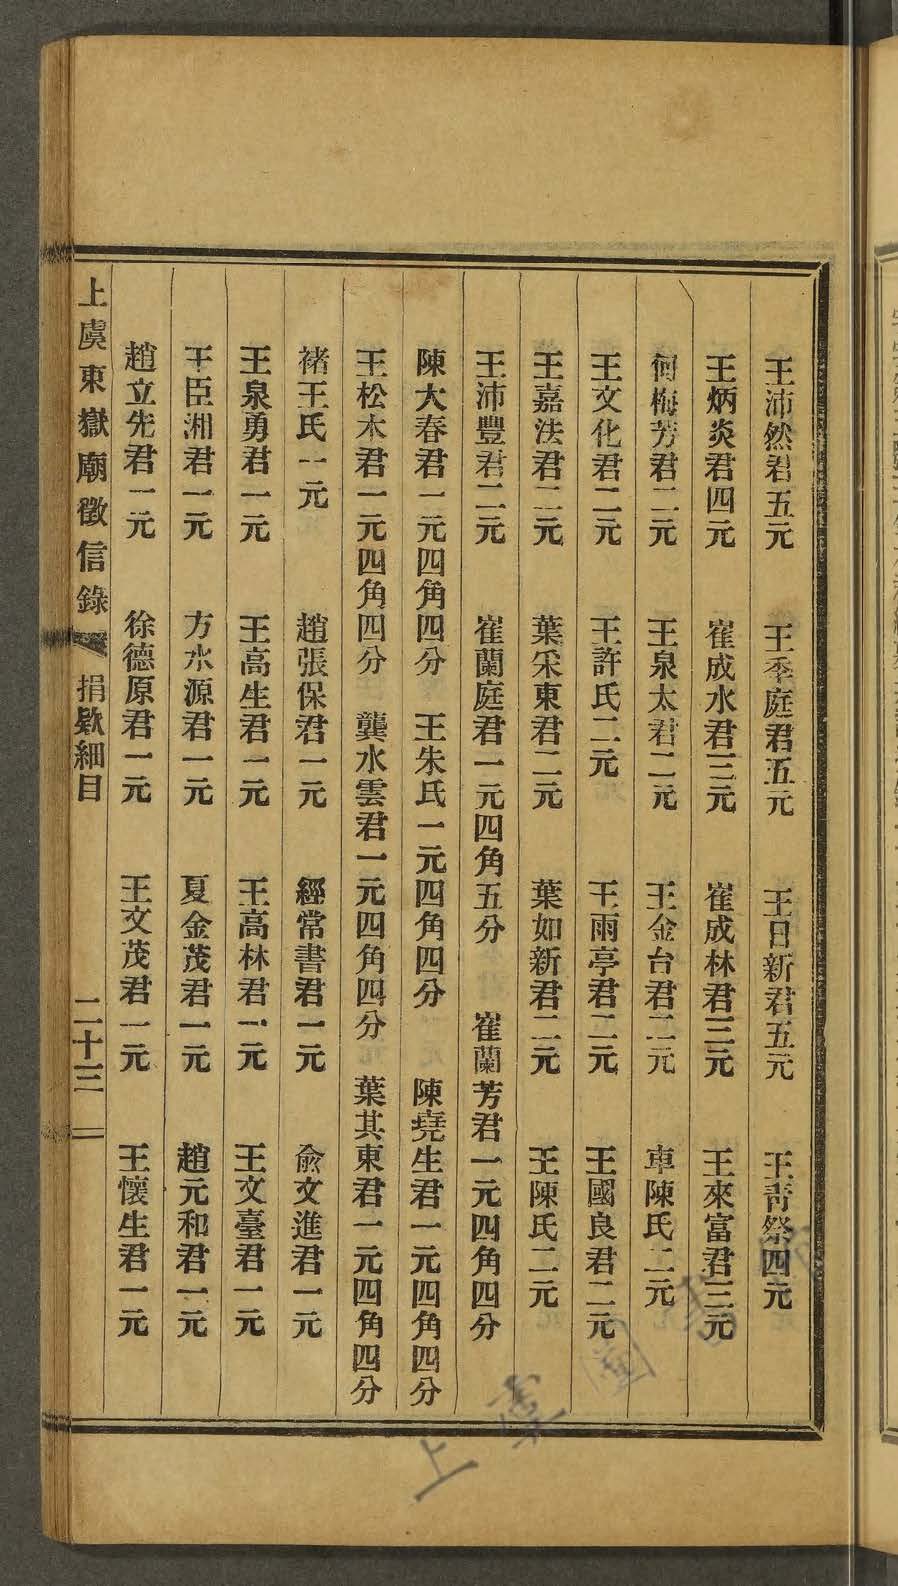 王沛然君五元　王季庭君五元　王日新君五元　王靑祭四元
王炳炎君四元　崔成水君三元　崔成林君三元　王來富君三元
何梅芳君二元　王泉太君二元　王金台君二元　車陳氏二元
王文化君二元　王許氏二元　王雨亭君二元　王國良君二元
王嘉法君二元　葉采東君二元　葉如新君二元　王陳氏二元
王沛豐君二元　崔蘭庭君一元四角五分　崔蘭芳君一元四角四分
陳大春君一元四角四分　王朱氏一元四角四分　陳堯生君一元四角四分
王松木君一元四角四分　龔水雲君一元四角四分　葉其東君一元四角四分
褚王氏一元　趙張保君一元　經常書君一元　俞文進君一元
王泉勇君一元　王高生君一元　王高林君一元　王文臺君一元
王臣湘君一元　方水源君一元　夏金茂君一元　趙元和君一元
趙立先君一元　徐德原君一元　王文茂君一元　王懷生君一元
上虞東嶽廟徵信錄　捐欵細目　二十三
上虞圖書館